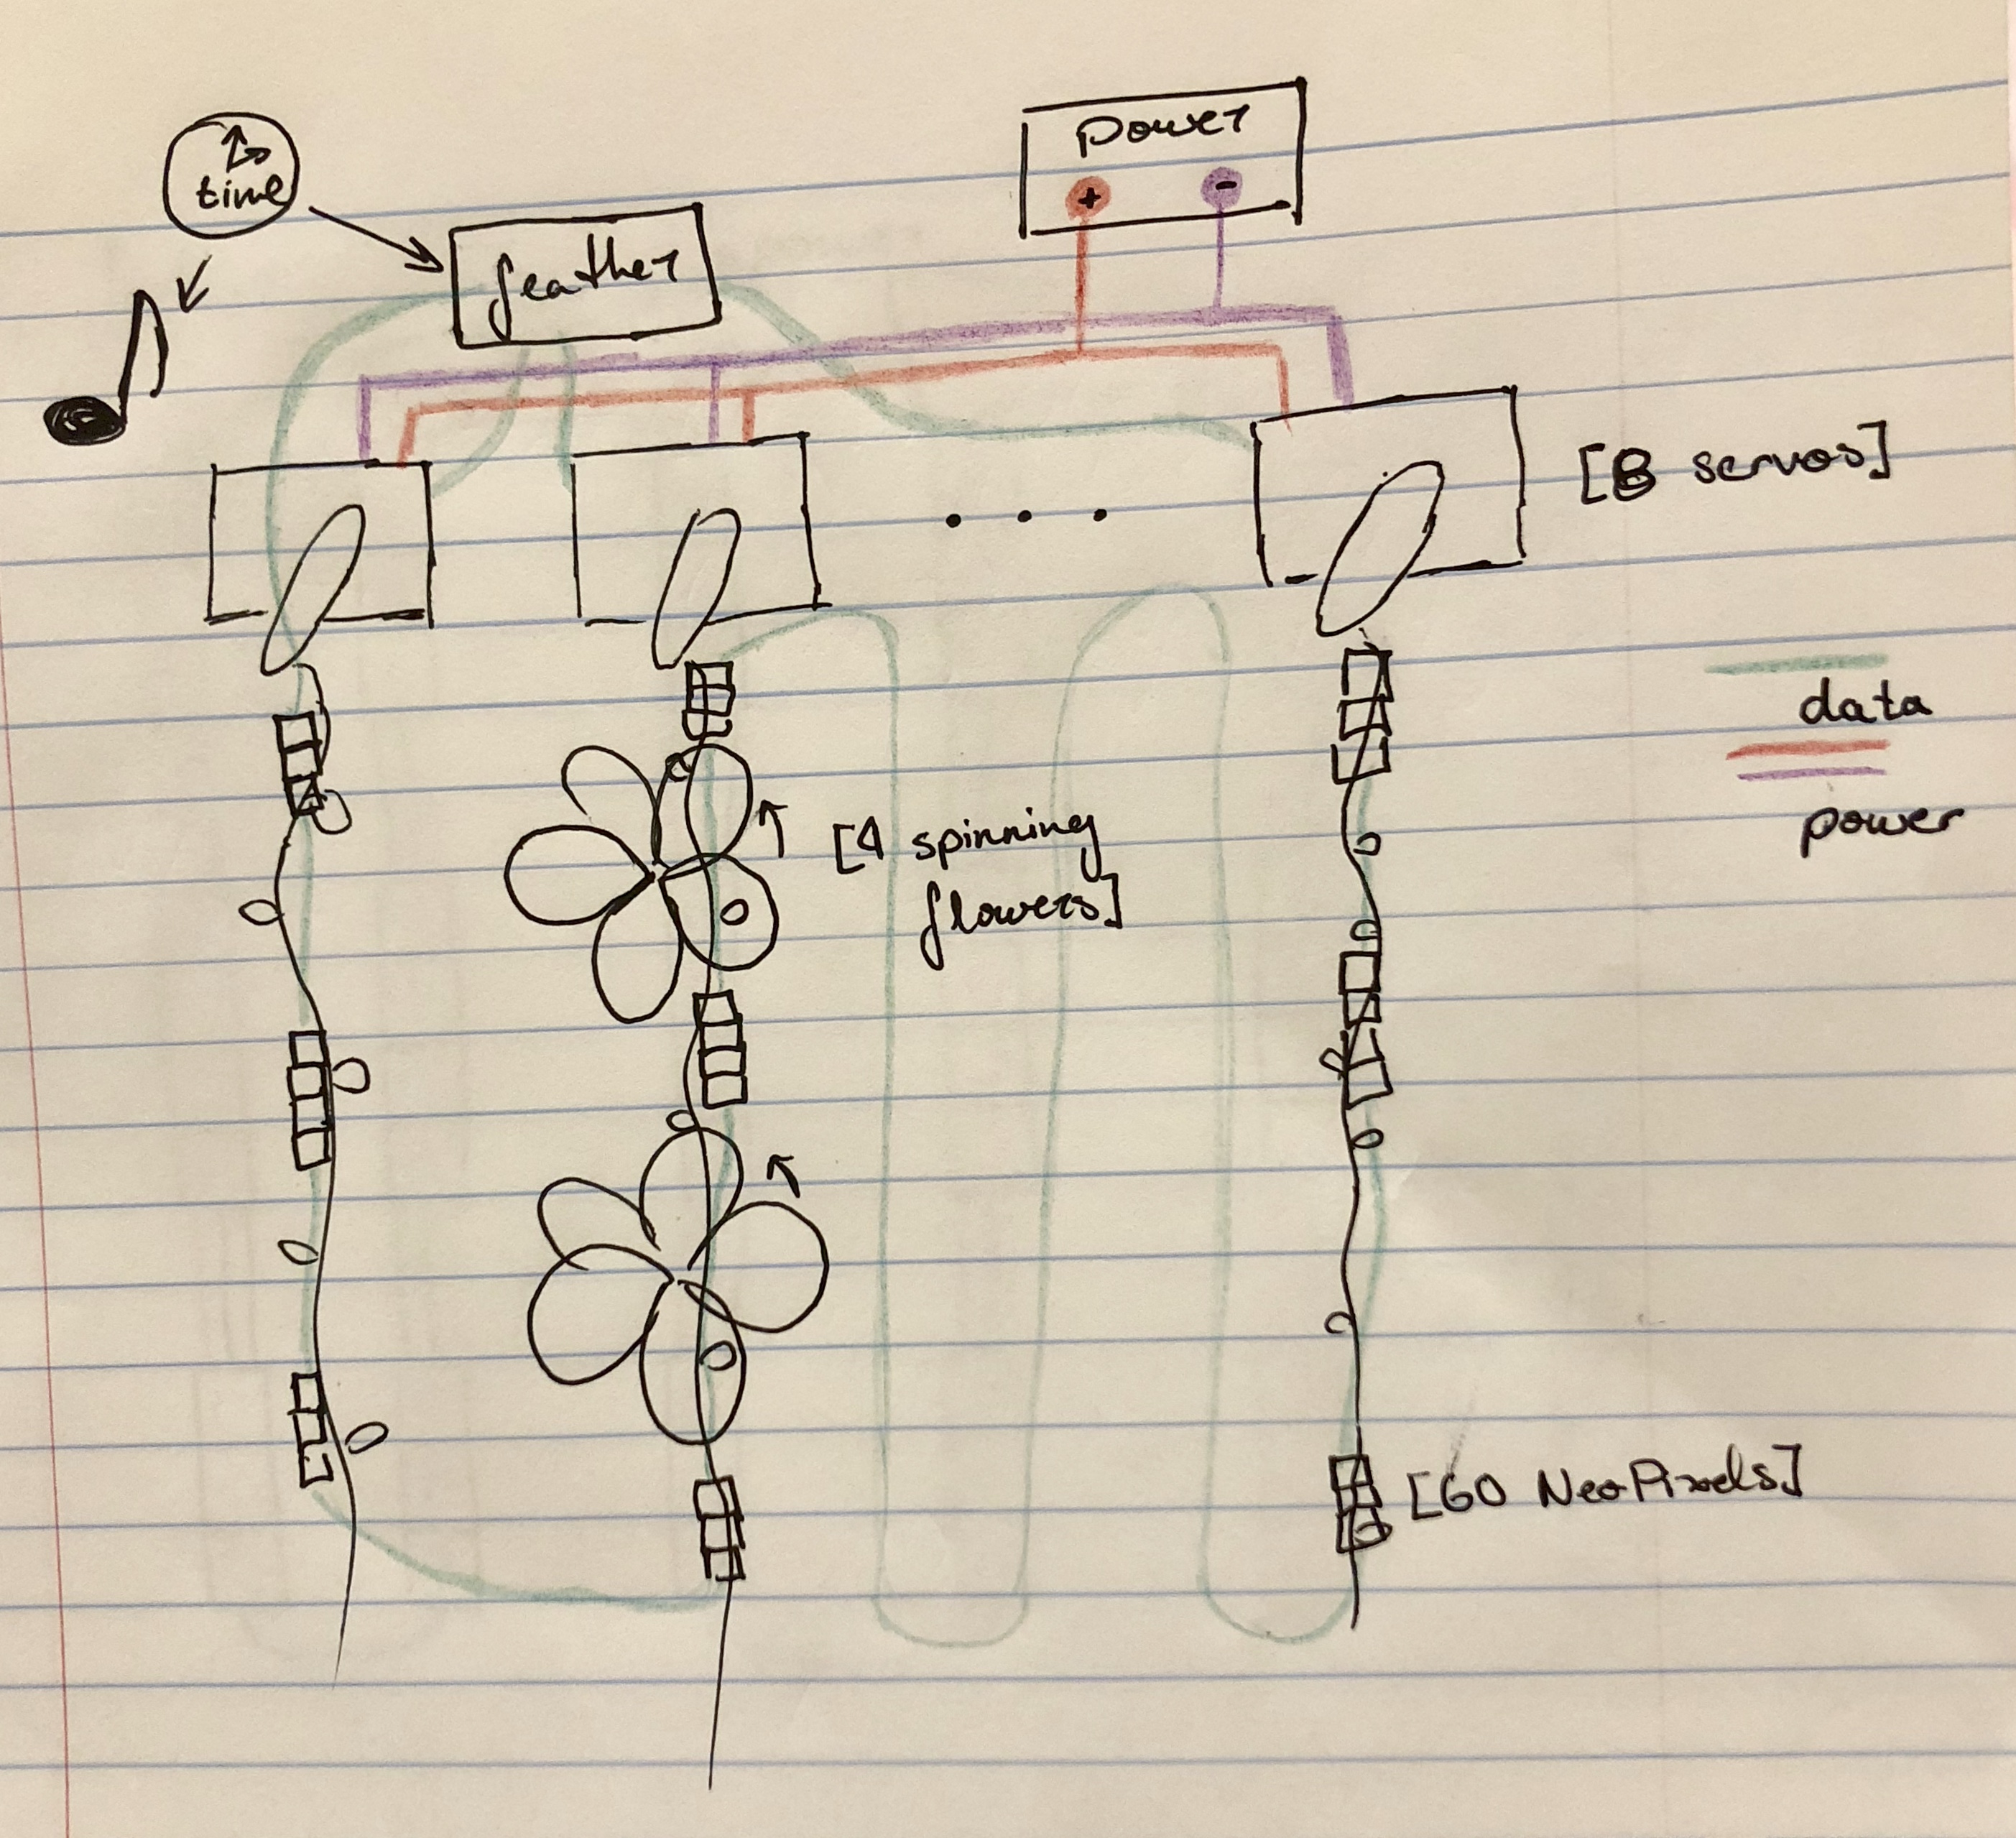 time
power
+ -
feather
[8 servos]
data
power
[4 spinning
flowers]
[60 NeoPixels]